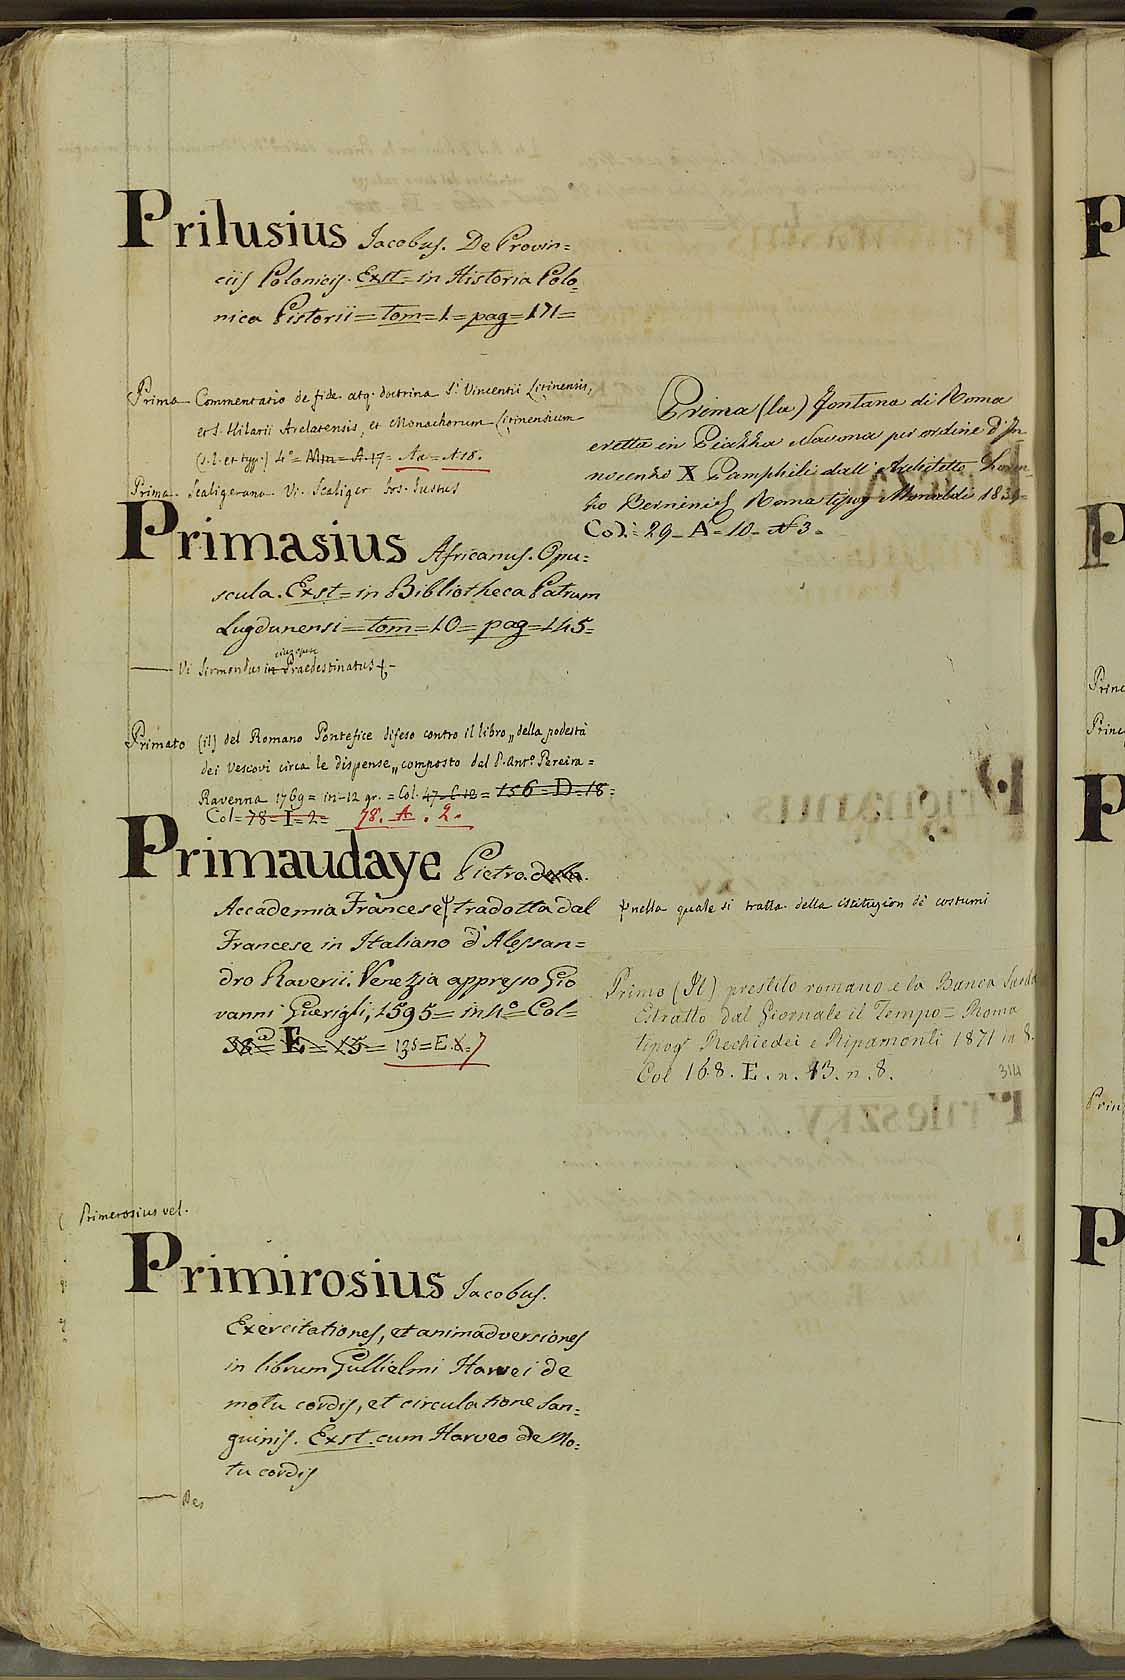 Prilusius Jacobus. De Provin=
ciis Polonicis. Exst= in Historia Polo=
nica Pistorii= tom=1=pag=171=
Prima Commentatio de fide atq. doctrina S. Vincentii Lirinensis,
et S. Hilarii Arelatensis, et Monachorum Lirinensium
(s. l. et typ.) 4°= A. 17= Aa= A18.
Prima Scaligerana. Vi. Scaliger Jos. Justus
Primasius Africanus. Opu=
scula. Exst= in Bibliotheca Patrum
Lugdunensi= tom=10= pag=145=
Vi Sirmondus in Praedestinatus
Primato (il) del Romano Pontefice difeso contro il libro „ della podestà
dei Vescovi circa le dispense „ composto dal P. Ant° Pereira =
Ravenna 1769= in-12 gr. = Col. 47. C 12 = 156=D=18=
Col= 78= I= 2= 78. A. 2.
Primaudaye Pietro della.
Accademia Francese tradotta dal
Francese in Italiano d'Alessan=
dro Raverii. Venezia appresso Gio
vanni Guerigli, 1595= in 4° Col=
38= E= 15= 135= E. 7
Primerosius vel.
Primirosius Jacobus.
Exercitationes, et animadversiones
in librum Gullielmi Harvei de
motu cordis, et circulatione San=
guinis. Exst. cum Harveo de Mo=
tu cordis
Prima (la) fontana di Roma
eretta in Piazza Navona per ordine d'In
nocenzo X Pamphili dall' Architetto Loren
zo Bernini Roma tipog Menaldi 183
Col: 29- A- 10- N 3-
nella quale si tratta della istituzion de' costumi
Primo (Il) prestito romano e la Banca Sarda
Estratto dal Giornale il Tempo= Roma
tipog. Rechiedei e Ripamonti 1871 in 8.
Col 168. E. n. 13. n. 8.
314